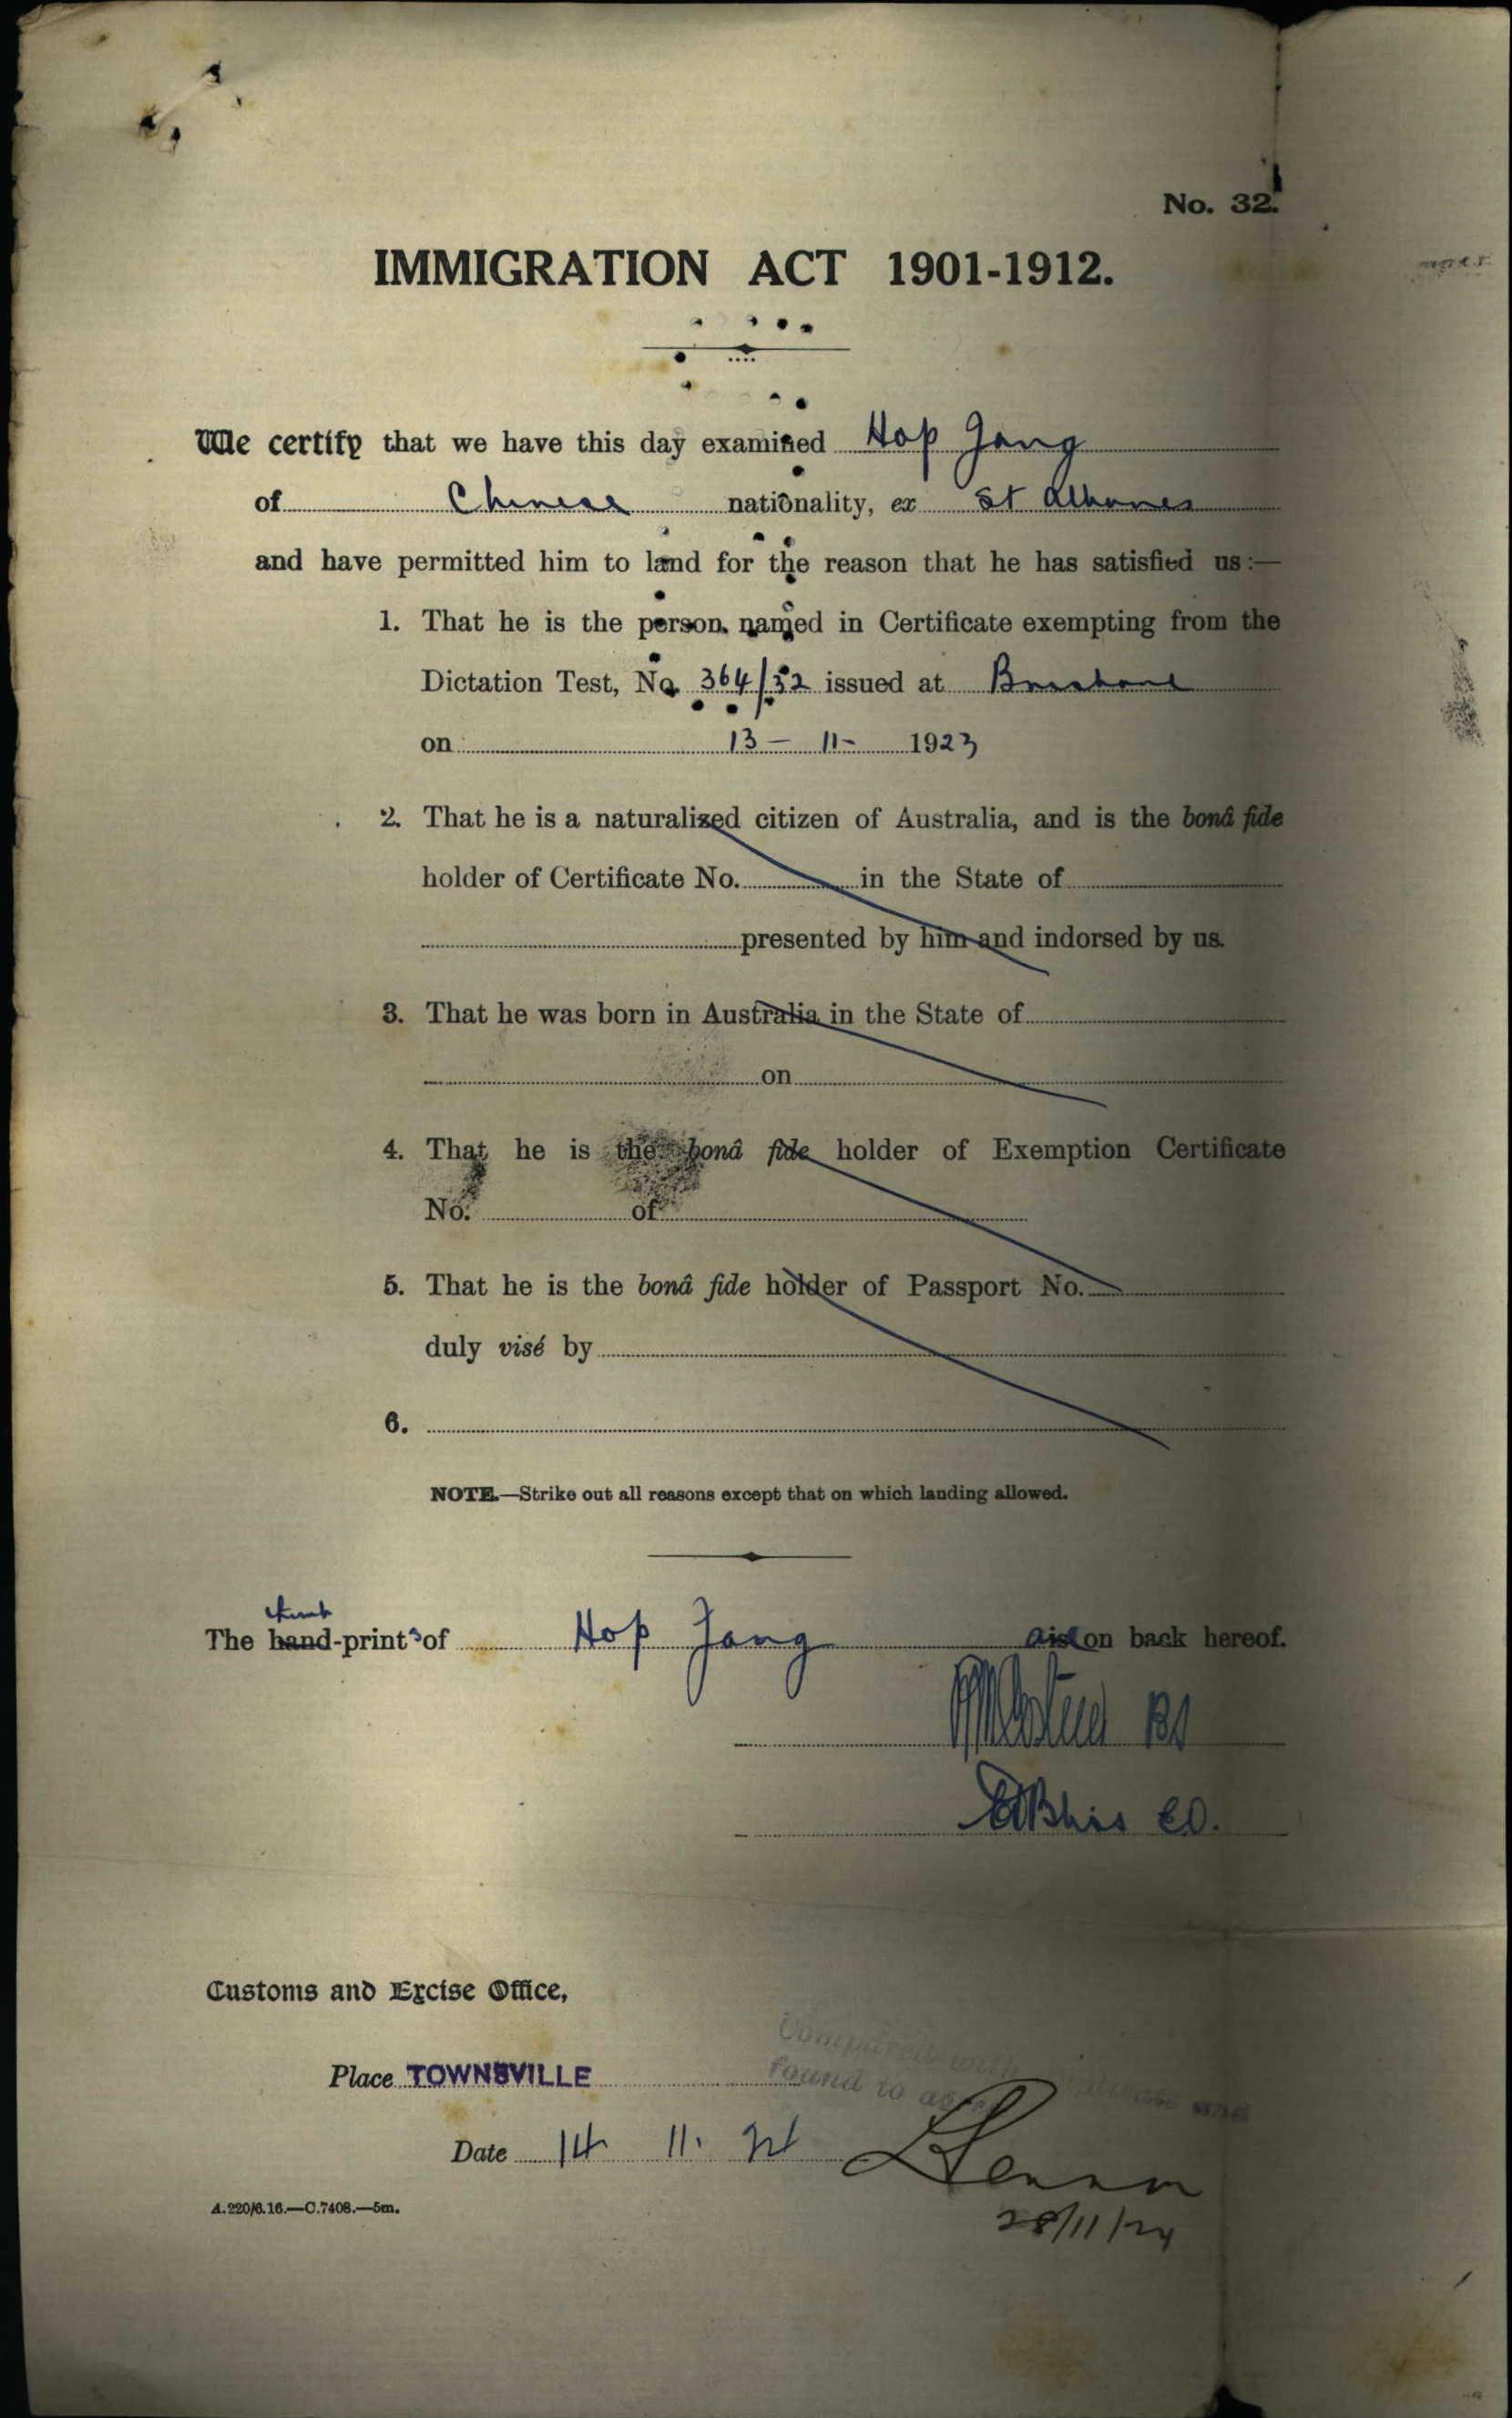 No. 32.
IMMIGRATION ACT 1901-1912.
We certify that we have this day examined Hop Jang
of Chinese nationality, ex St Albans
and have permitted him to land for the reason that he has satisfied us:—
1. That he is the person named in Certificate exempting from the
Dictation Test, No. 364/52 issued at Brisbane
on 13 - 11 - 1923
2. That he is a naturalized citizen of Australia, and is the bonâ fide
holder of Certificate No. in the State of
presented by him and indorsed by us.
3. That he was born in Australia in the State of
on
4. That he is the bonâ fide holder of Exemption Certificate
No. of
5. That he is the bonâ fide holder of Passport No.
duly visé by
6.
NOTE.—Strike out all reasons except that on which landing allowed.
thumb
The hand-prints of Hop Jang on back hereof.
Customs and Excise Office,
Compared with
found to
Place TOWNSVILLE
Date 14 11. 24
28/11/24
A.220/6.16.—C.7408.—5m.